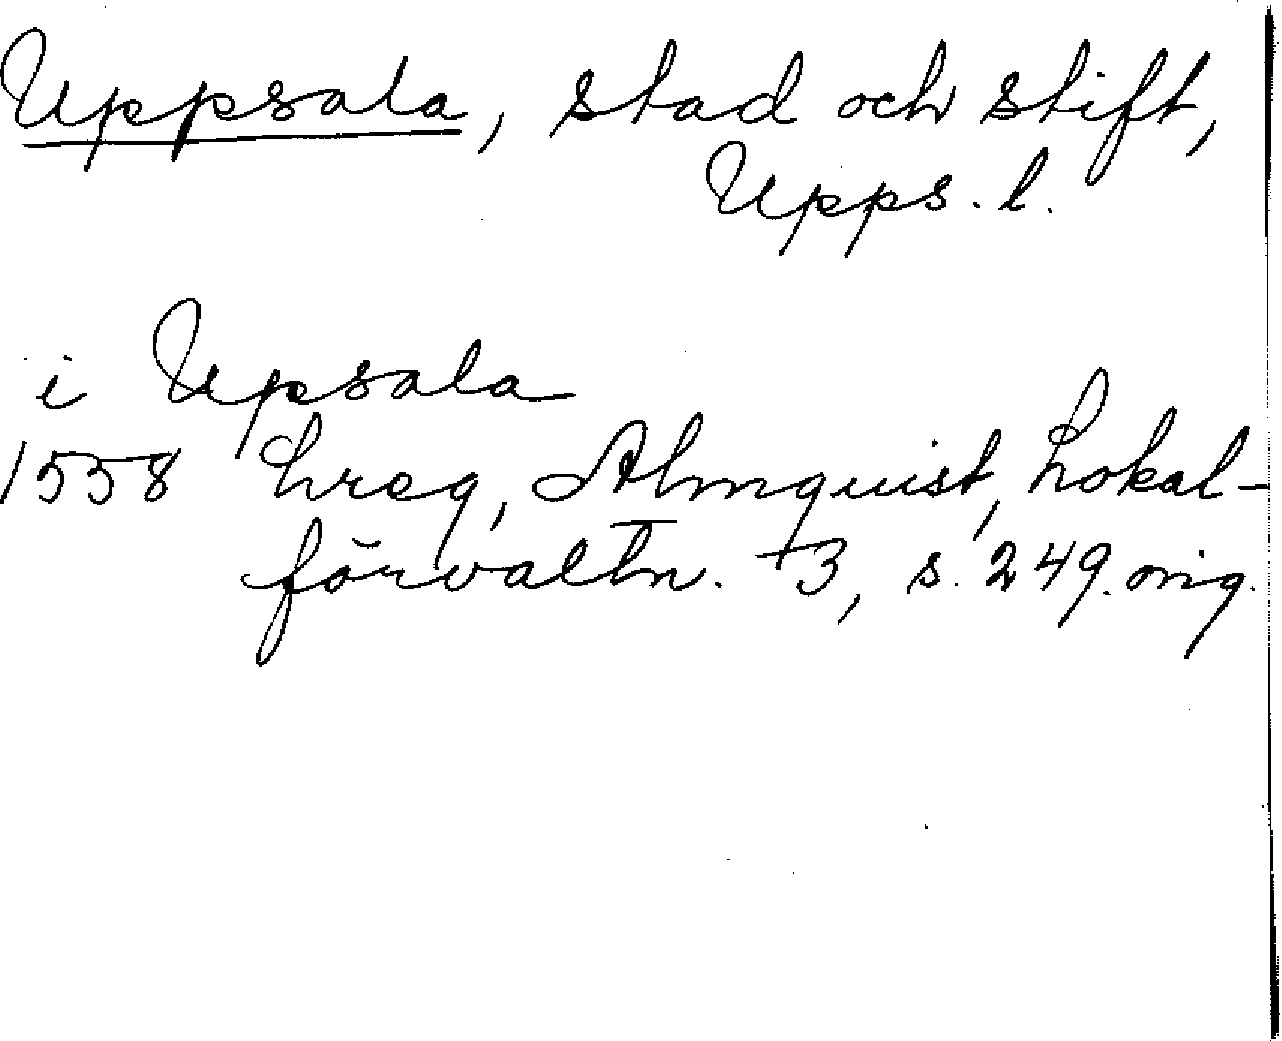 Uppsala, stad och stift,
Upps. l.
i Upsala
1558 Lreg, Almquist, Lokal-
förvaltn. +3, s. 249. orig.